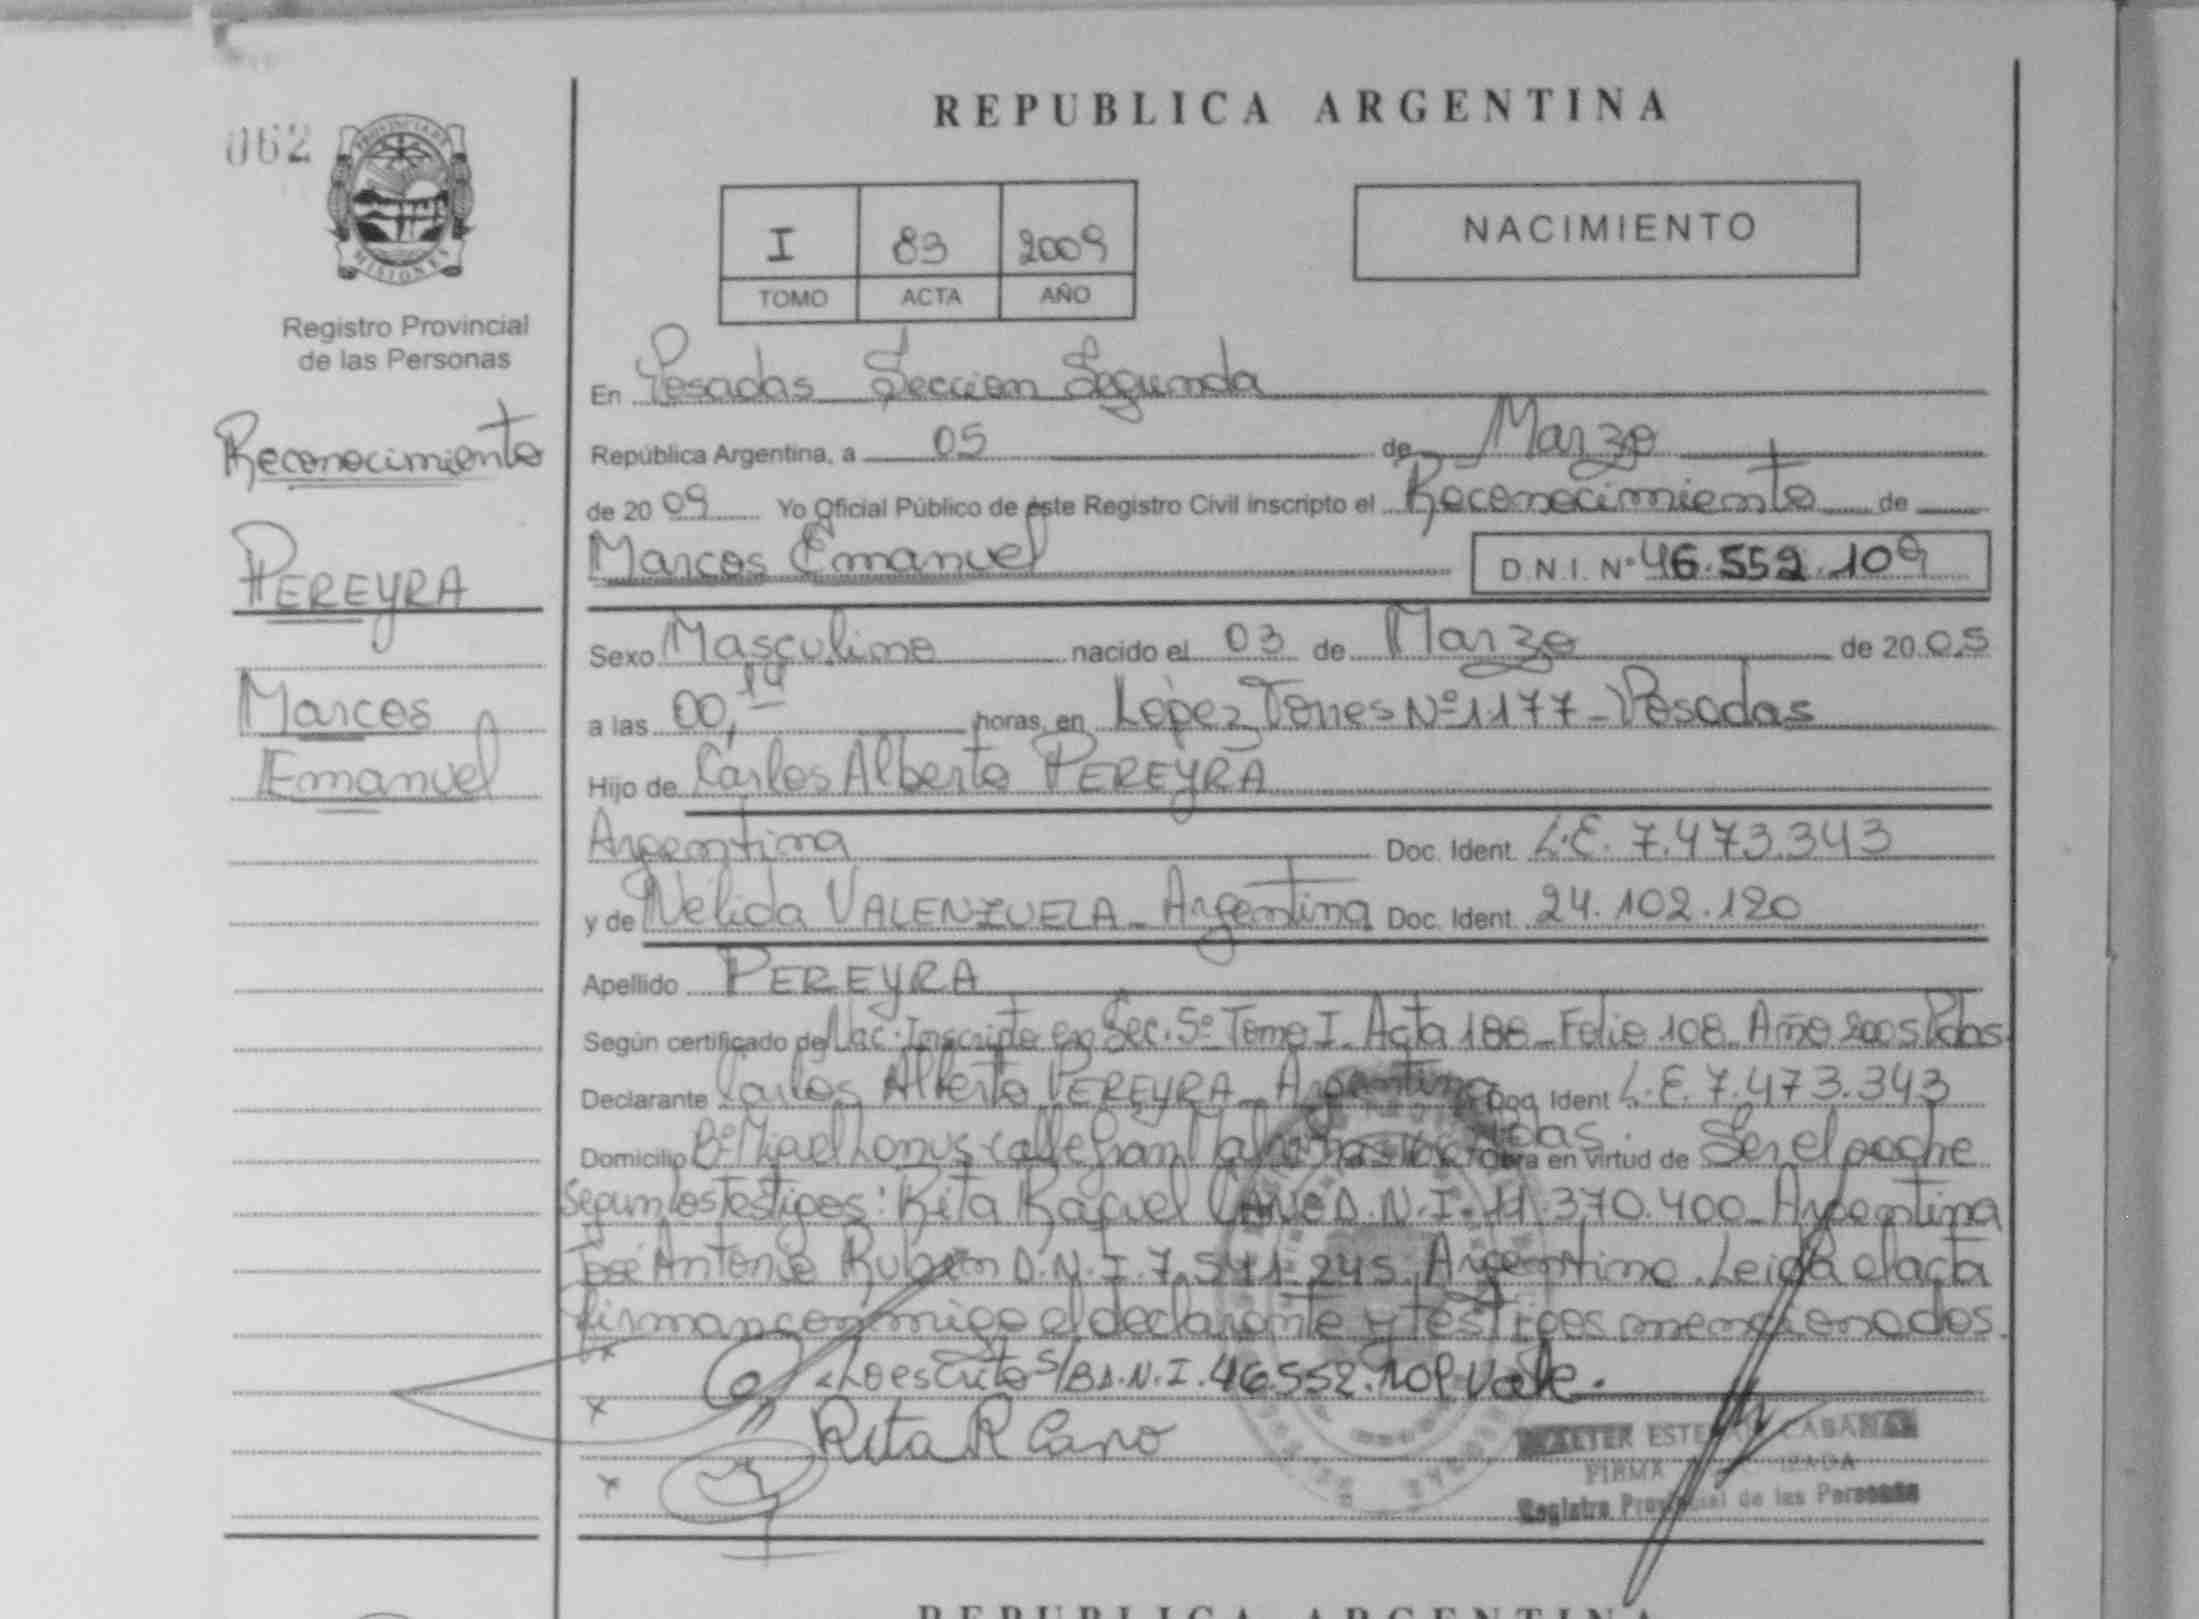 REPUBLICA ARGENTINA
062
PROVINCIA DE
MISIONES
Registro Provincial
de las Personas
Reconocimiento
PEREYRA
Marcos
Emanuel
I 83 2009
TOMO ACTA AÑO
NACIMIENTO
En Posadas Seccion Segunda
República Argentina, a 05 de Marzo
de 2009 Yo Oficial Público de éste Registro Civil inscripto el Reconocimiento de
Marcos Emanuel D.N.I. Nº 46.552.109
Sexo Masculino nacido el 03 de Marzo de 2005
a las 00,14 horas, en López Torres Nº 1177 - Posadas
Hijo de Carlos Alberto PEREYRA
Argentina Doc. Ident. L.E. 7.473.343
y de Nélida VALENZUELA - Argentina Doc. Ident. 24.102.120
Apellido PEREYRA
Según certificado de Nac. Inscripto en Sec. 5º Tomo I. Acta 188 - Folio 108. Año 2005 Pdas.
Declarante Carlos Alberto PEREYRA - Argentino Doc. Ident L.E. 7.473.343
Domicilio Bº calle Obra en virtud de Ser el padre
Segun los Testigos: Rita Raquel CANO D.N.I. 11.370.400 - Argentina
José Antonio Ruben D.N.I. 7.541.245. Argentino. Leida el acta
firman conmigo el declarante y testigos mencionados.
Lo escrito s/B D.N.I. 46.552.109 Vale.
Rita R Cano
WALTER CABAÑAS
FIRMA
Registro Provincial de las Personas
REPUBLICA ARGENTINA